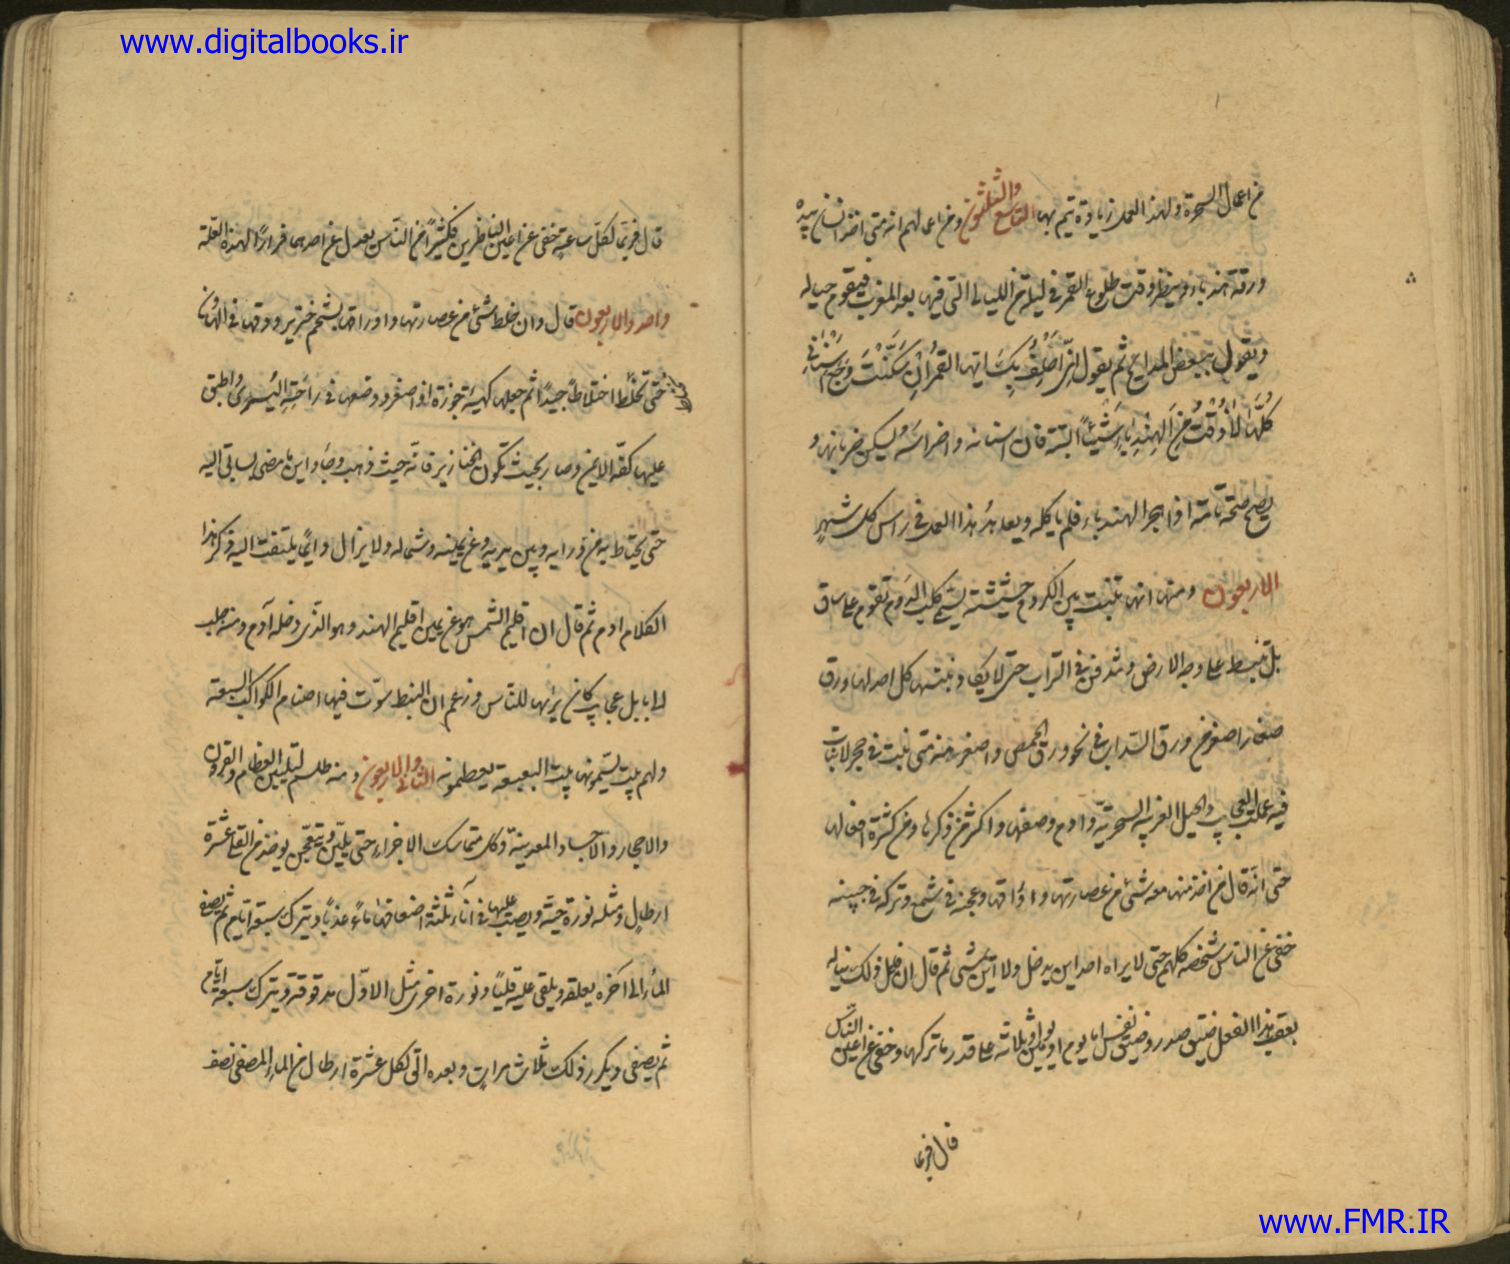 www.digitalbooks.ir
من اعمال السحرة ولهذا العمل زيادة تتم بها التاسع والثلثون ومن اعمالهم انه متى اخذ انسان بيده
ورقة هندباء وينظر وقت طلوع القمر في ليلة من الليالى التى فيها بعد المغرب فيقوم حياله
ويقول ببعض المدايح ثم يقول انى احلف بك ايها القمر ان سكنت وجع اسنانى
كلها لا ذقت من الهندباء شيئا البتة فان اسنانه واضراسه ليسكن ضربانها و
يصح صحة تامة اذا هجر الهندباء فلم ياكله ويعد هذا العمل في راس كل شهر
الاربعون ومنها انها تنبت بين الكروم حشيشة تسمى كلب الروم تقوم على ساق
بل تنبسط على وجه الارض وتدفن في التراب حتى لا يكاد ونبتها كل اصل لها ورق
صغار اصغر من ورق السداب في نحو ورق الحمص واصغر منه متى نبت في حجر لا نبات
فيه عملت العجايب والحيل الغريبة السحرية وادم وصفها واكثر من ذكرها ومن كثرة افعالها
حتى انه قال من اخذ منها معه شيئ من عصارتها واوراقها وعجنه في شمع وتركه في جيبه
خفى عن الناس شخصه كلهم حتى لا يراه احد اين يدخل ولا اين يمشى ثم قال ان فعل ذلك يناله
بعقب هذا الفعل ضيق صدر وضيق نفس اما يوم او يومين او ثلاثة على قدر ما تركها وخفى عن اعين الناس
قال فربما
قال فربما لكل ساعة خفى عن اعين الناظرين فكثيرا من الناس يعدل عن اصرهما فرارا لهذه العلة
واحد والاربعون قال وان خلط شئ من عصارتها واوراقها بشحم خنزير ودقها في الهاون
حتى تختلط اختلاطا جيدا ثم جعلها كهيئة جوزة او اصغر ووضعها في راحته اليسرى واطبق
عليها كفه الايمن وصار بحيث تكون الخنازير فانه حيث ذهب وجاء واين ما مضى ياتى اليه
حتى يحتاط به من ورايه وبين يديه وعن يمينه وشماله ولا يزال دايما يلتفت اليه وذكر هذا
الكلام ادم ثم قال ان اقليم الشمس هو عن يمين اقليم الهند وهو الذى دخله آدم ومنه جلب
لاا بابل عجايب كان يريها للناس وزعم ان النبط سوت فيها اصنام الكواكب السبعة
ولهم بيت يسمونها بيت السبعة يعظمونه الثانى والاربعون ومنه طلسم لتليين العظام والقرون
والاحجار والاجساد المعدنية وكل متماسك الاجزاء حتى يلين وتنعجن يوخذ من القلى عشرة
ارطال ومثله نورة حية ويصب عليها في اناء ثلثة اضعافها ماء عذبا ويترك سبعة ايام ثم يصفى
الماء الى آخره بعلقه ويلقى عليه قليا ونورة اخرى مثل الاول مدقوقة ويترك سبعة ايام
ثم يصفى ويكرر ذلك ثلاث مرات وبعده الق لكل عشرة ارطال من الماء المصفى نصف
www.FMR.IR